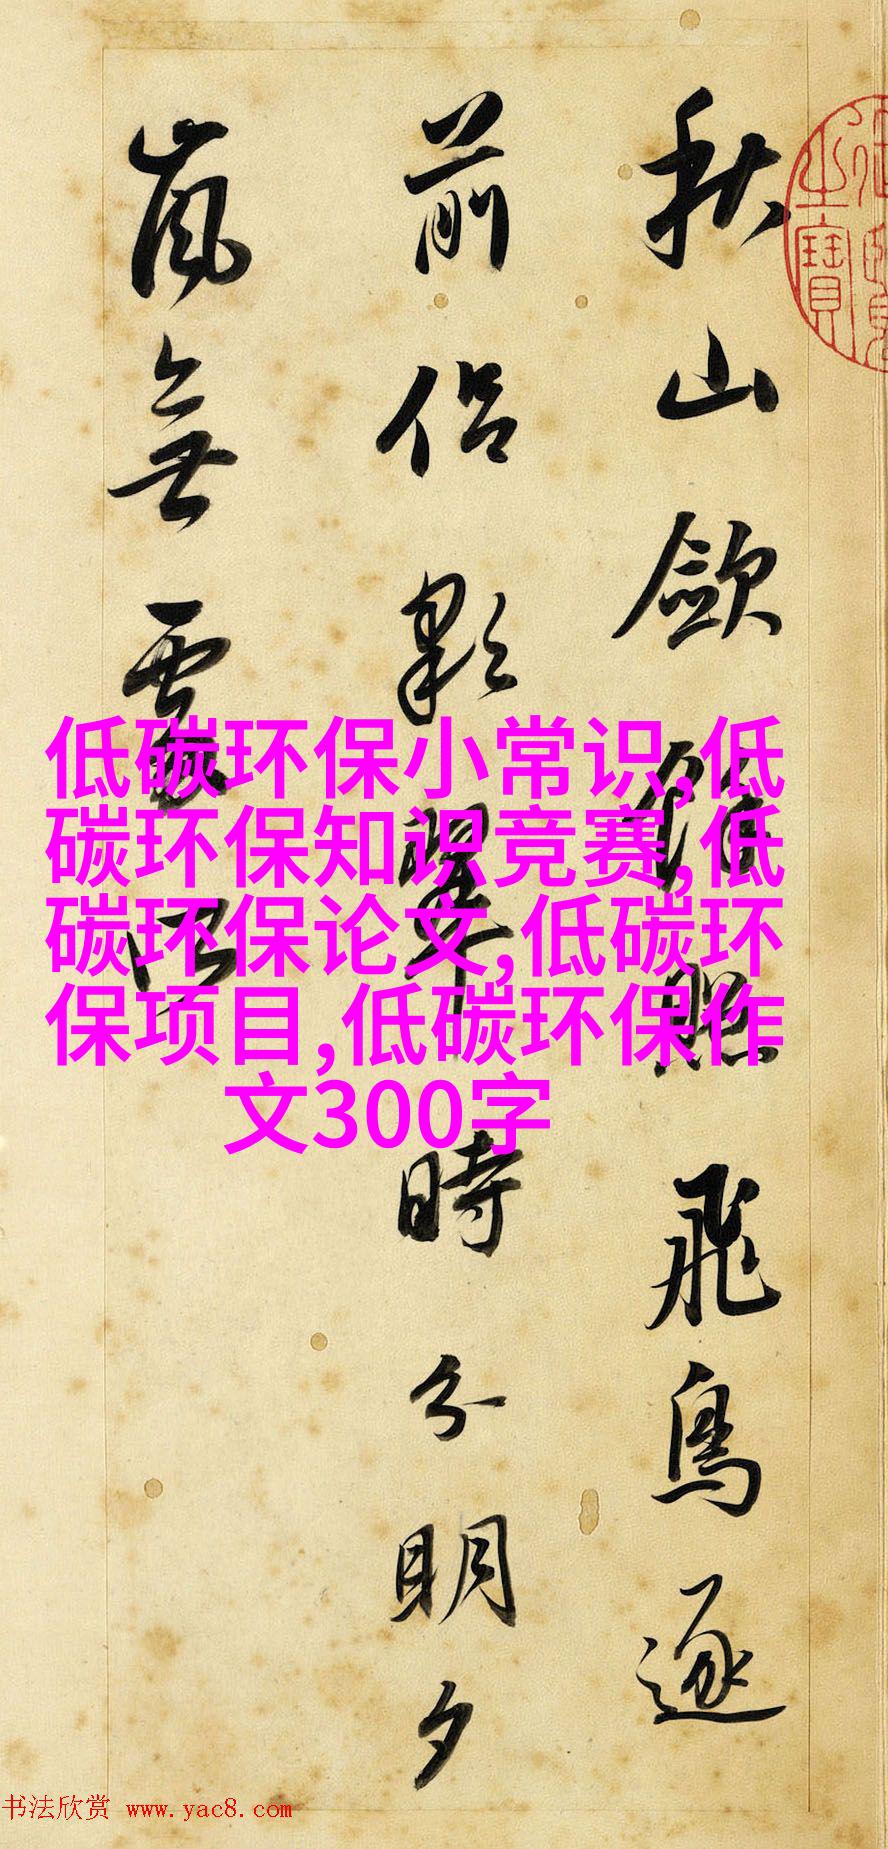 秋山歛餘照飛鳥逐
前侣彩翠時分明夕
嵐無處所
低碳环保小常识,低
碳环保知识竞赛,低
碳环保论文,低碳环
保项目,低碳环保作
文300字
之寶
书法欣赏 www.yac8.com